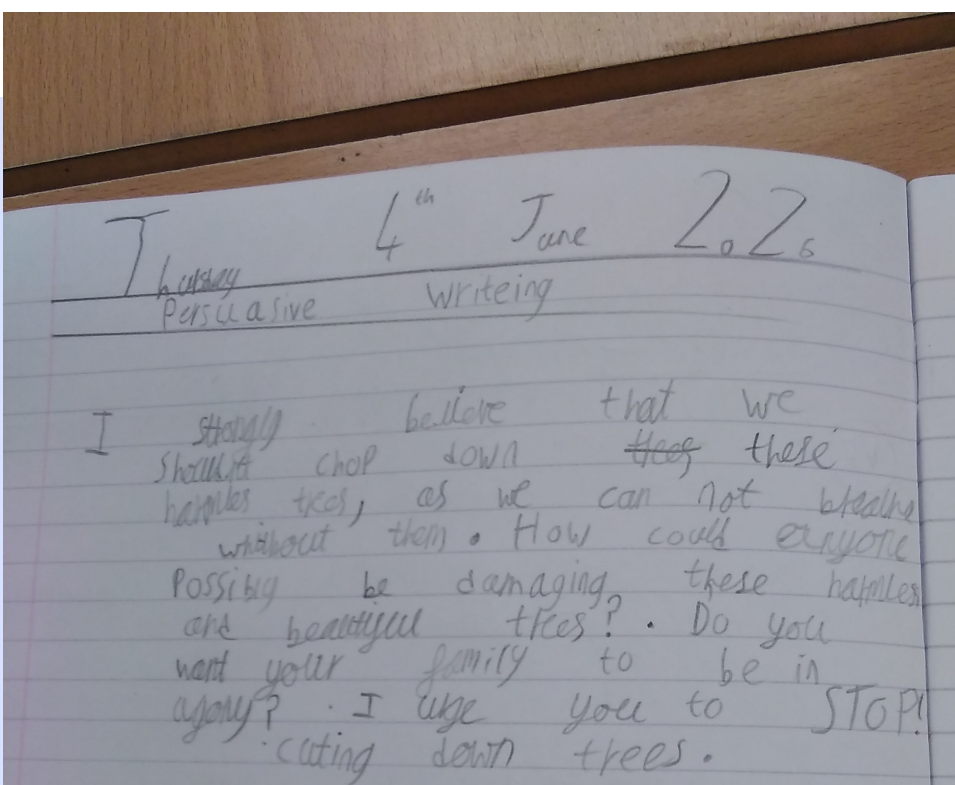 Thursday 4th June 2026
Persuasive writeing
I strongly believe that we
should't chop down these
harmles trees, as we can not breathe
whithout them. How could enyone
Possibly be damaging these harmles
and beautiful trees?. Do you
want your family to be in
agony?. I urge you to STOP!
cuting down trees.